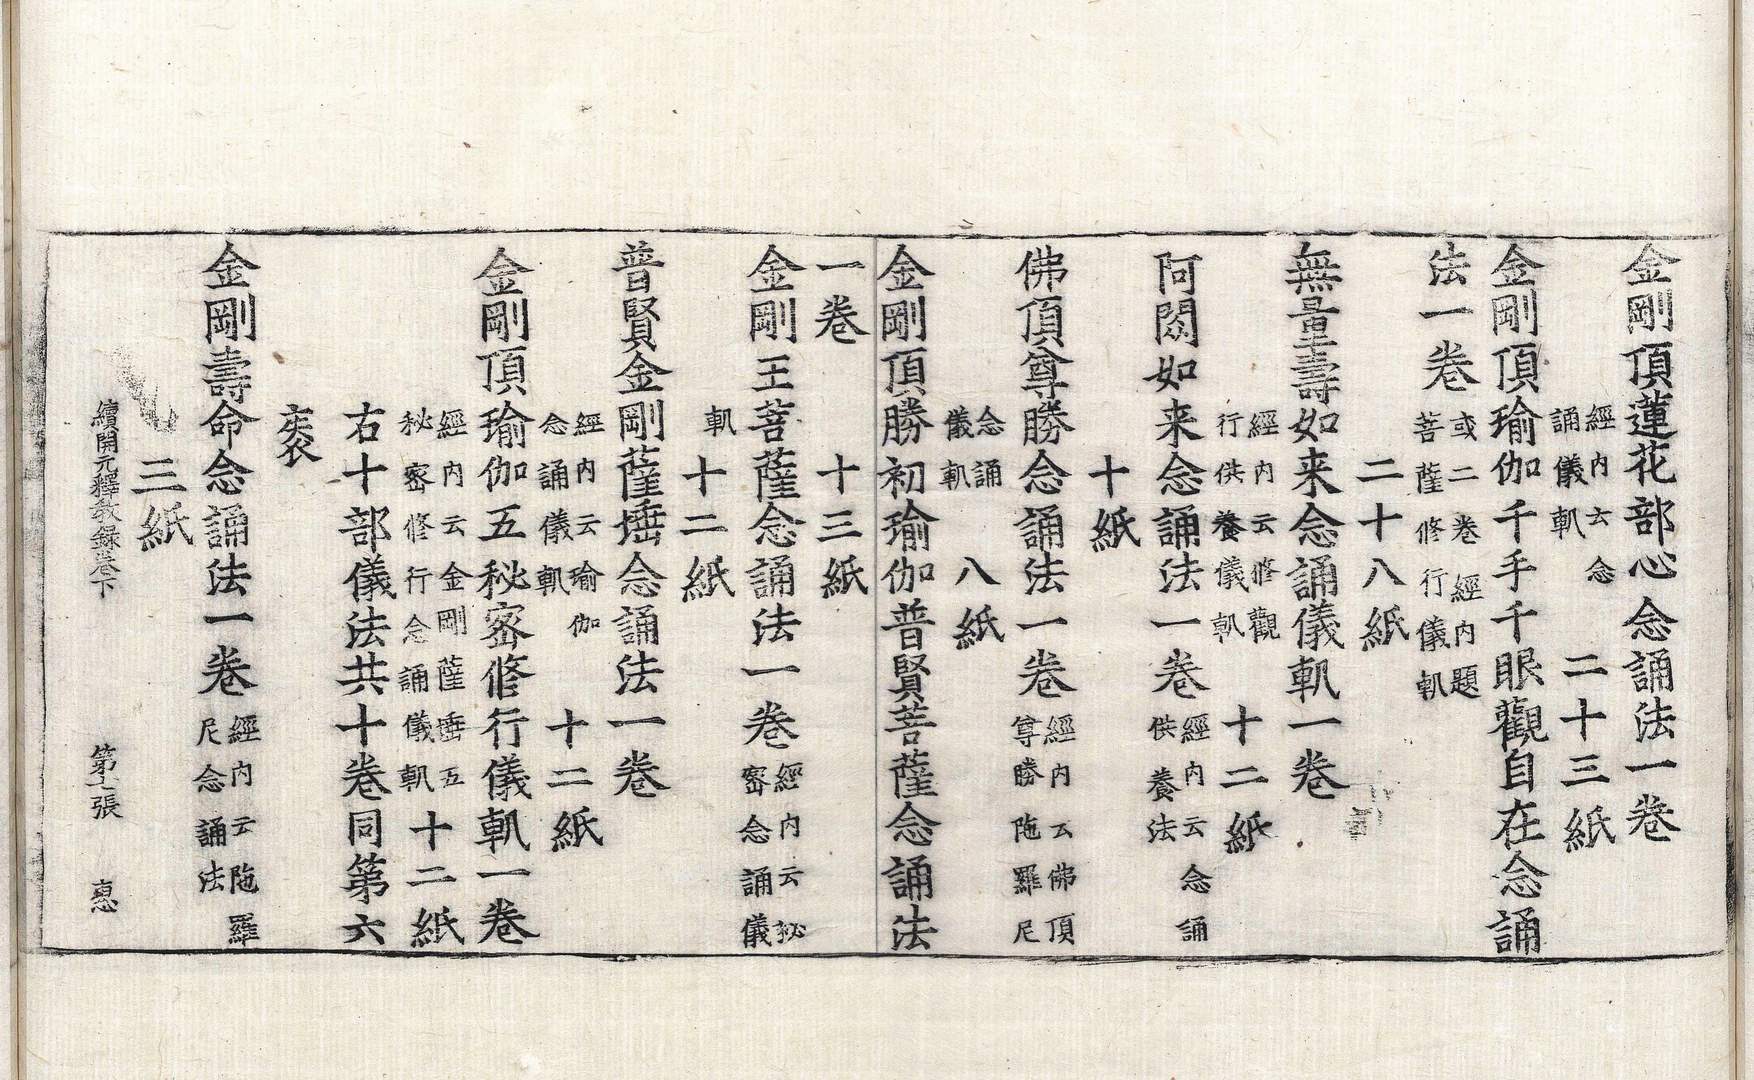 金剛頂蓮花部心念誦法一卷
經内云念
誦儀軌
二十三紙
金剛頂瑜伽千手千眼觀自在念誦
法一卷
或二卷經内題
菩薩修行儀軌
二十八紙
無量壽如来念誦儀軌一卷
經内云修觀
行供養儀軌
十二紙
阿閦如来念誦法一卷
經内云念誦
供養法
十紙
佛頂尊勝念誦法一卷
經内云佛頂
尊勝陁羅尼
念誦
儀軌
八紙
金剛頂勝初瑜伽普賢菩薩念誦法
一卷
十三紙
金剛王菩薩念誦法一卷
經内云秘
密念誦儀
軌
十二紙
普賢金剛薩埵念誦法一卷
經内云瑜伽
念誦儀軌
十二紙
金剛頂瑜伽五秘密修行儀軌一卷
經内云金剛薩埵五
秘密修行念誦儀軌
十二紙
右十部儀法共十卷同第六
袠
金剛壽命念誦法一卷
經内云陁羅
尼念誦法
三紙
續開元釋教録卷下 第 張 惠